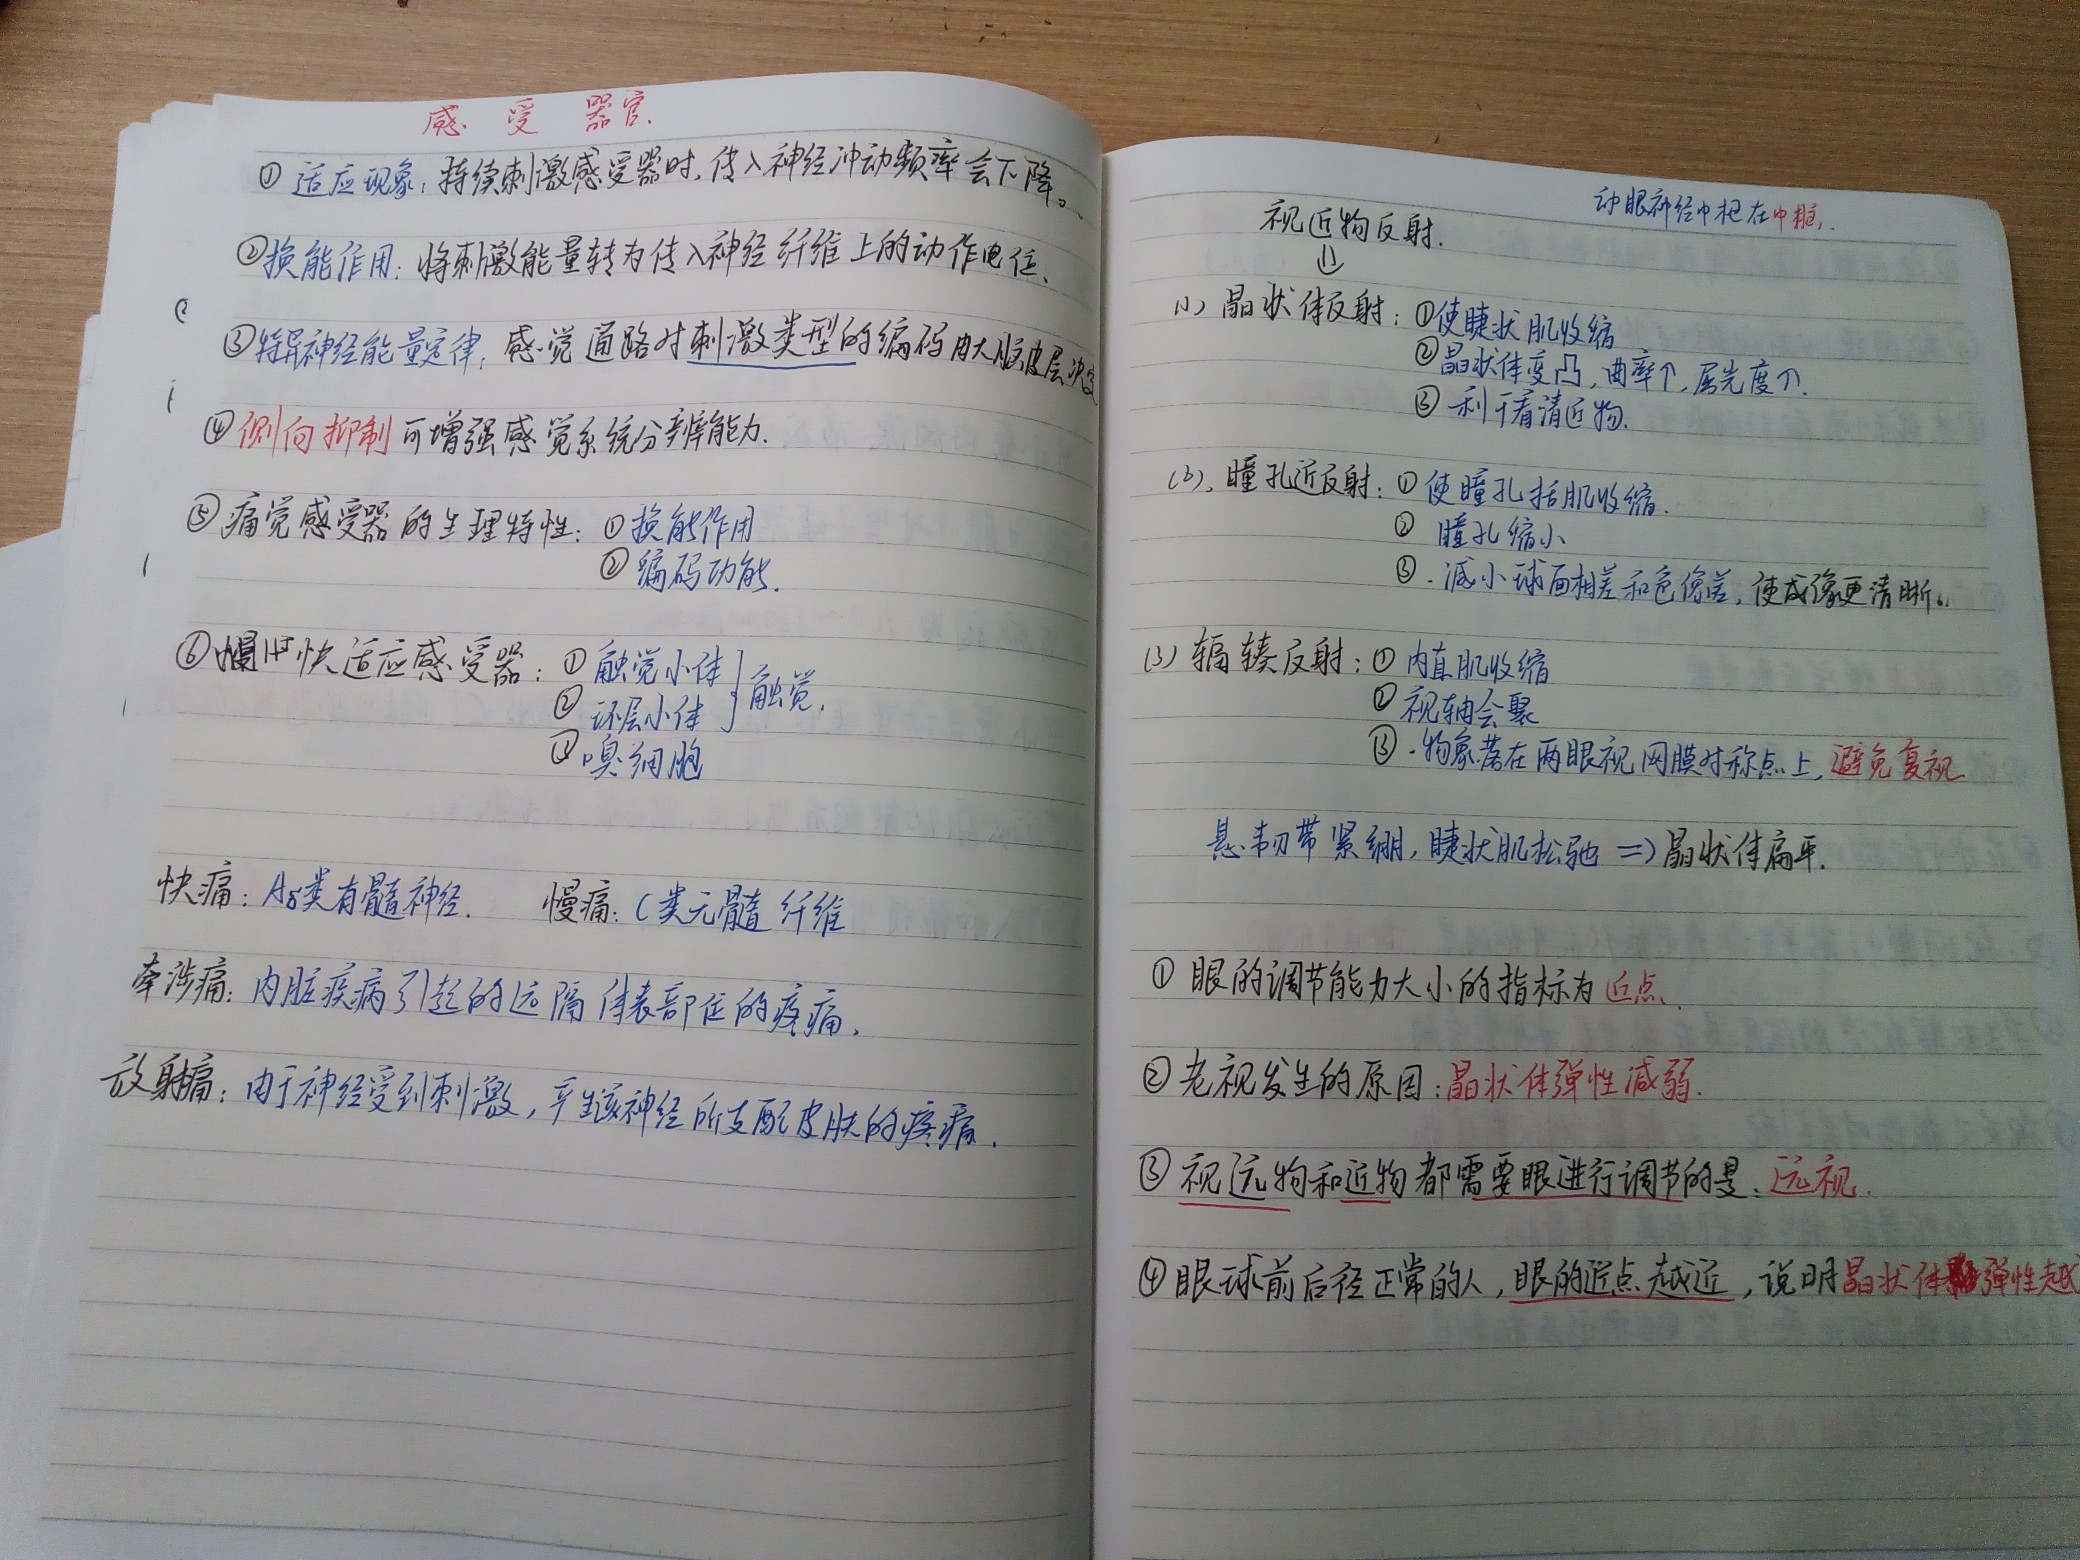 感受器官
①适应现象:持续刺激感受器时,传入神经冲动频率会下降。
②换能作用:将刺激能量转为传入神经纤维上的动作电位、
③特异神经能量定律:感觉通路对刺激类型的编码由大脑皮层决定
④侧向抑制可增强感觉系统分辨能力.
⑤痛觉感受器的生理特性:①换能作用
②编码功能.
⑥快适应感受器:①触觉小体
②环层小体 }触觉.
③嗅细胞
快痛:Aδ类有髓神经. 慢痛:C类无髓纤维
牵涉痛:内脏疾病引起的远隔体表部位的疼痛.
放射痛:由于神经受到刺激,产生该神经所支配皮肤的疼痛.
动眼神经中枢在中脑.
视近物反射.
⇓
(1)晶状体反射:①使睫状肌收缩
②晶状体变凸,曲率↑,屈光度↑.
③利于看清近物.
(2).瞳孔近反射:①使瞳孔括肌收缩.
②瞳孔缩小
③.减小球面相差和色像差,使成像更清晰.
(3)辐辏反射:①内直肌收缩
②视轴会聚
③.物象落在两眼视网膜对称点上,避免复视
悬韧带紧绷,睫状肌松驰=>晶状体扁平.
①眼的调节能力大小的指标为近点.
②老视发生的原因:晶状体弹性减弱.
③视远物和近物都需要眼进行调节的是:远视.
④眼球前后径正常的人,眼的近点越近,说明晶状体弹性越